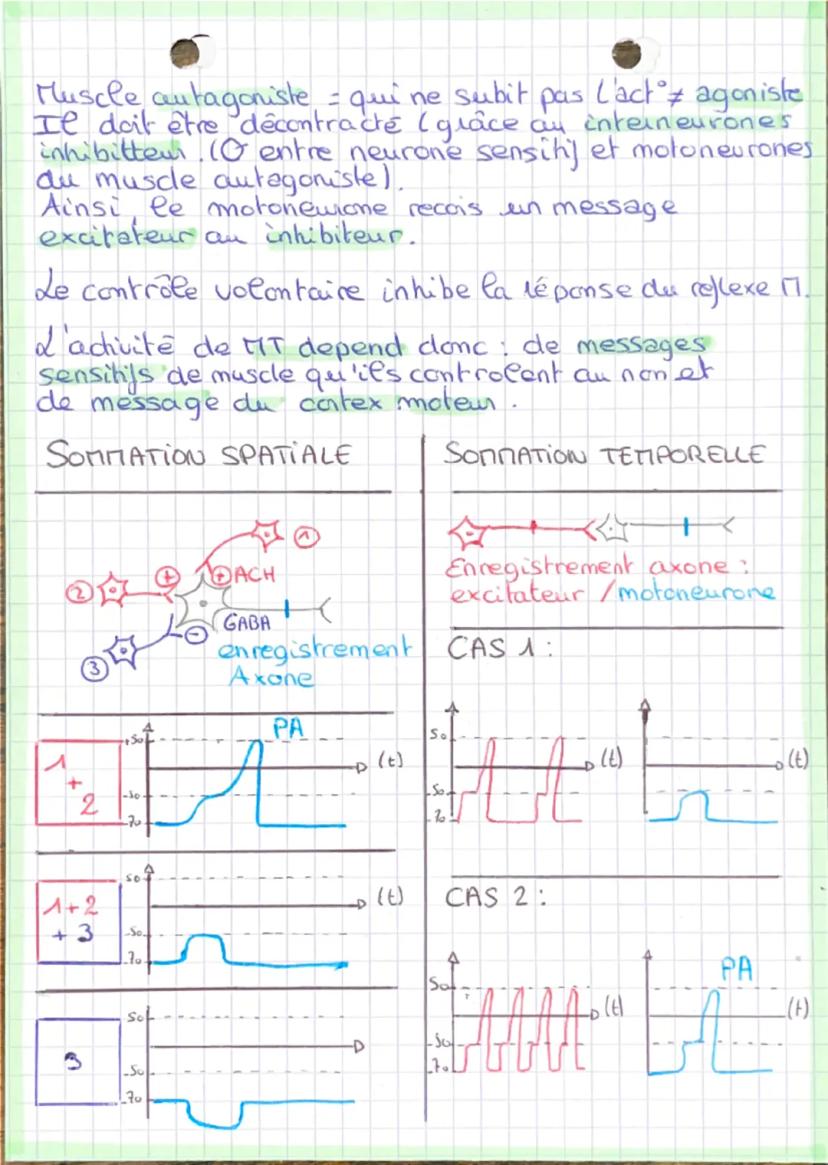 Muscle antagoniste = qui ne subit pas l'act° ≠ agoniste
Il doit être décontracté (grâce au interneurones
inhibitteur. (O entre neurone sensitif et motoneurones
du muscle antagoniste).
Ainsi, le motoneurone recois un message
excitateur ou inhibiteur.
Le contrôle volontaire inhibe la réponse du reflexe M.
L'activité de MT depend donc : de messages
sensitifs de muscle qu'ils controlent ou non et
de message du cortex moteur.
SOMMATION SPATIALE
1
2
+
+ ACH
GABA
-
3
enregistrement
Axone
1
+
2
+50
-50
-70
PA
(t)
1+2
+ 3
50
-50
-70
(t)
3
50
-50
-70
SOMMATION TEMPORELLE
Enregistrement axone :
excitateur / motoneurone
CAS 1 :
50
-50
-70
(t)
(t)
CAS 2 :
50
-50
-70
(t)
PA
(t)